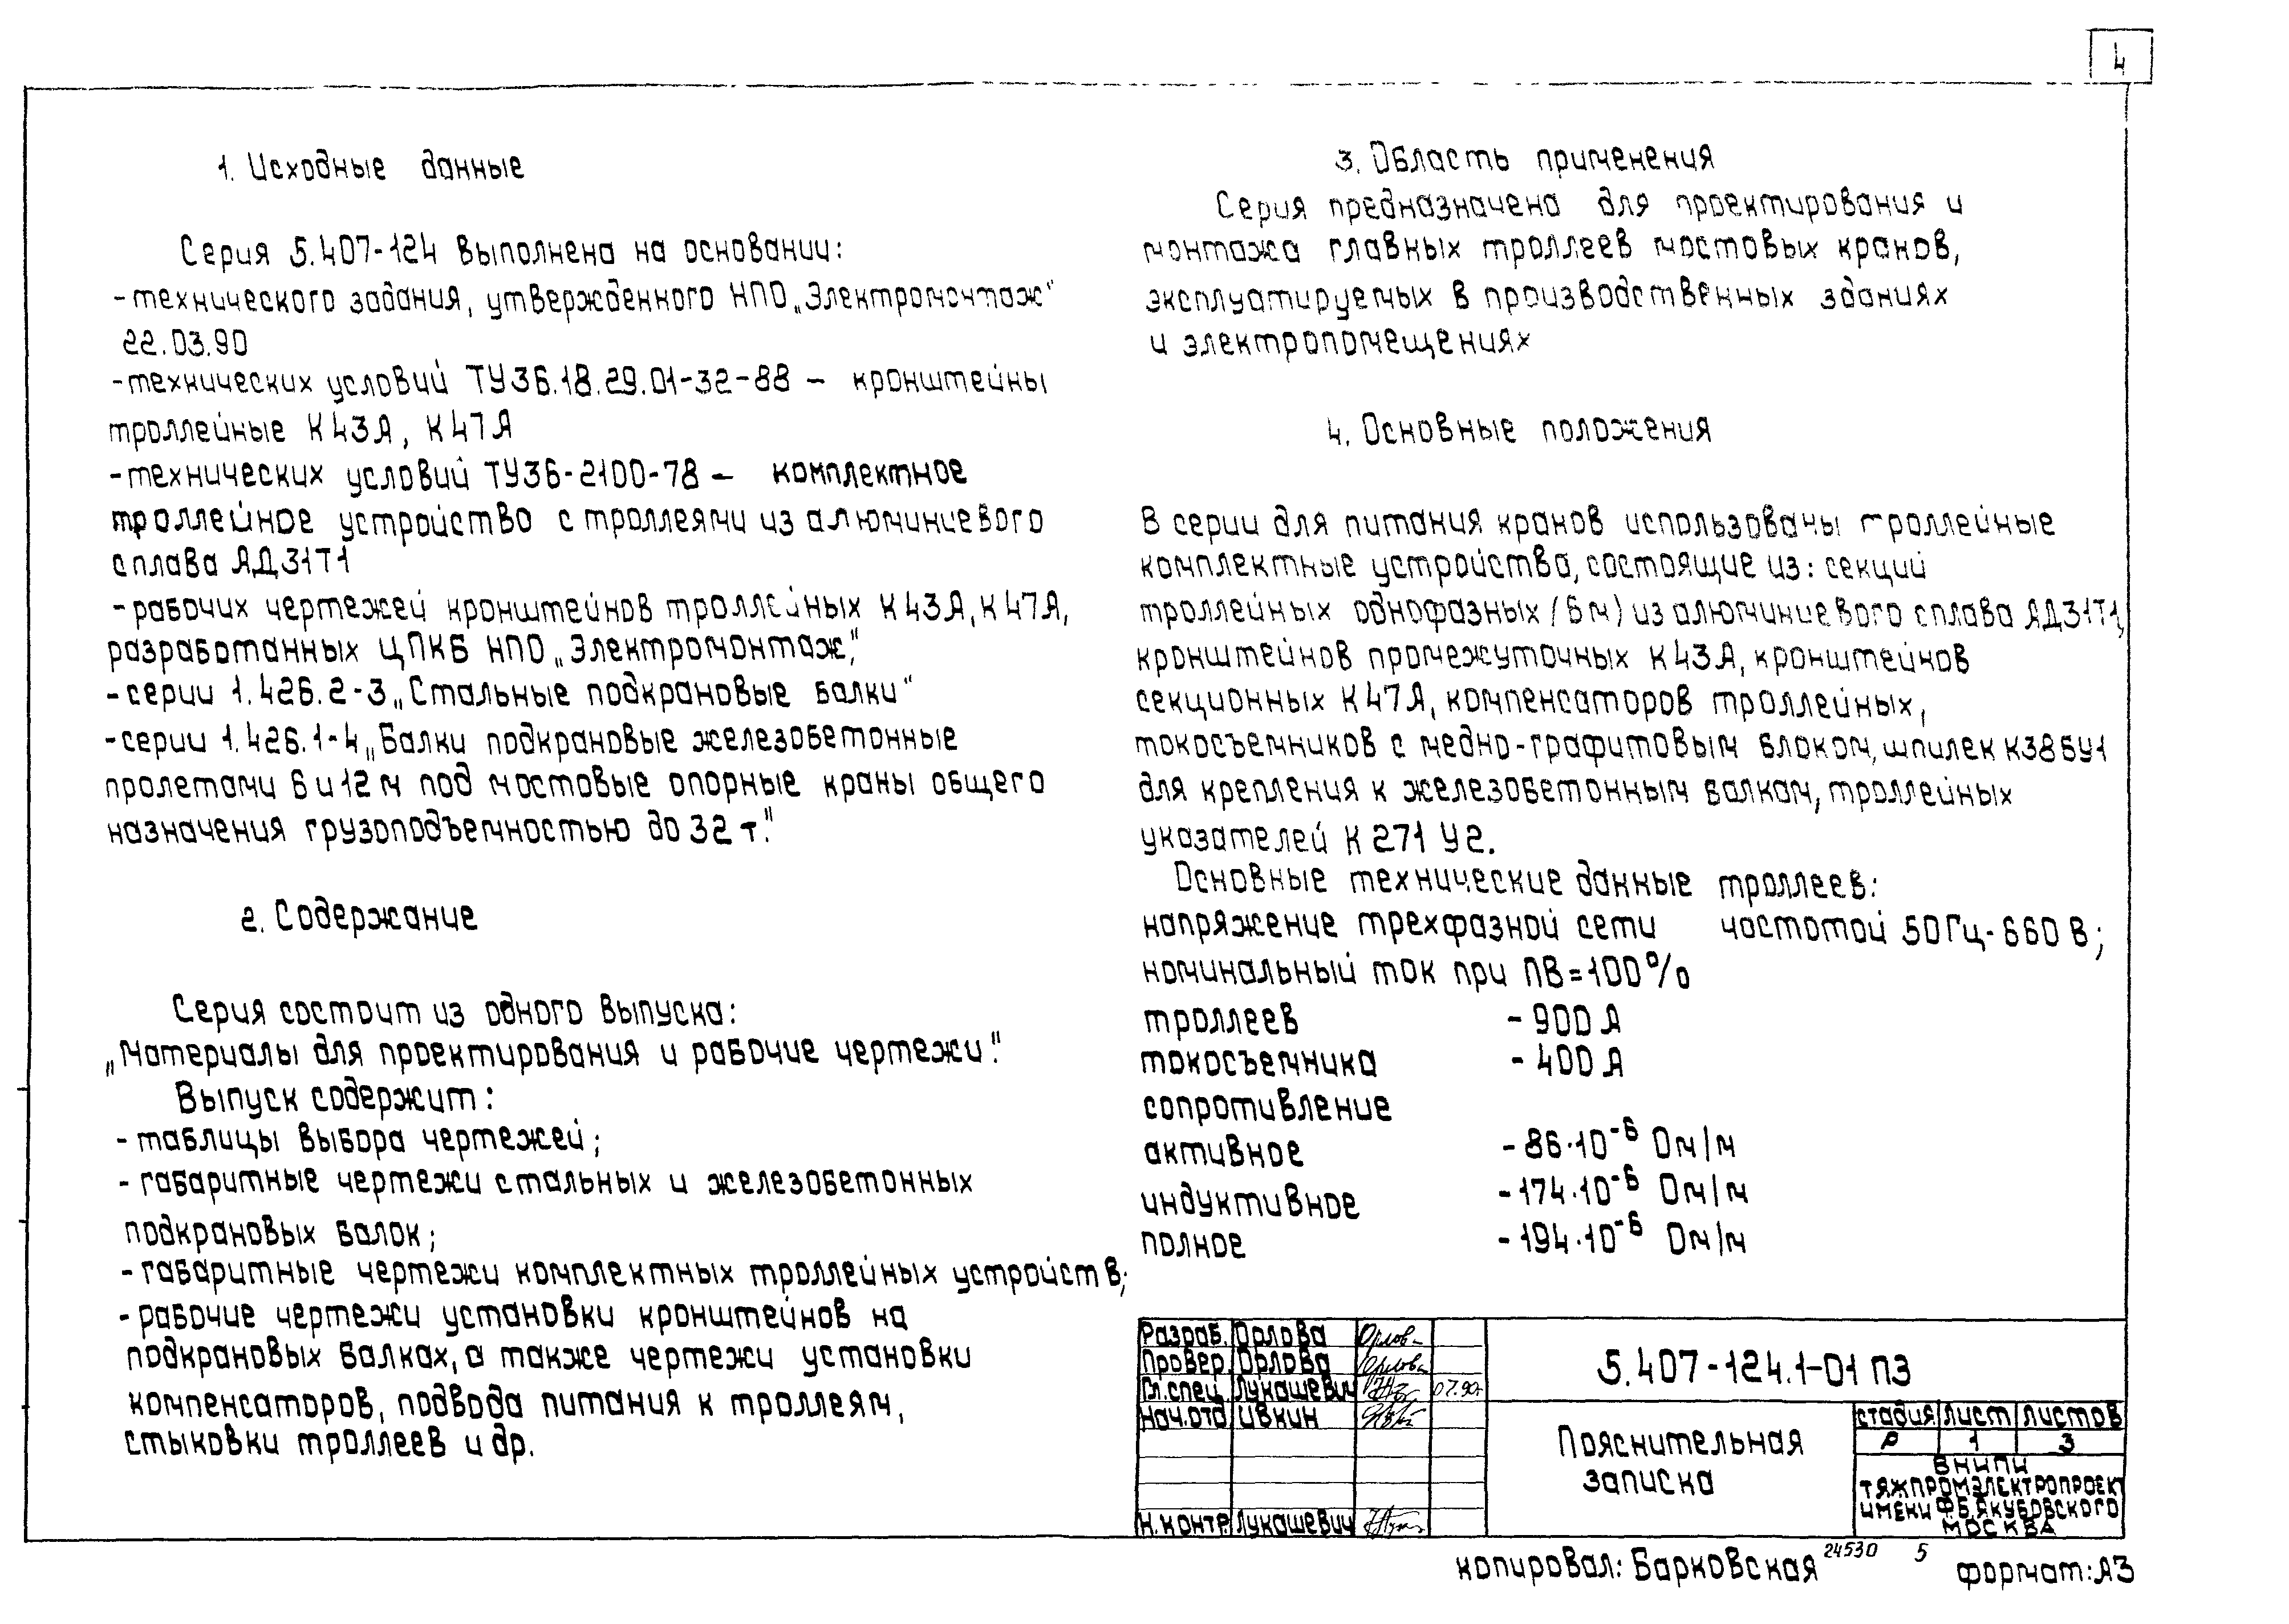 4
1. Исходные данные
Серия 5.407-124 выполнена на основании:
-технического задания, утвержденного НПО „Электромонтаж"
22.03.90
-технических условий ТУ36.18.29.01-32-88 – кронштейны
троллейные К43А, К47А
-технических условий ТУ36-2100-78 – комплектное
троллейное устройство с троллеями из алюминиевого
сплава АД31Т1
-рабочих чертежей кронштейнов троллейных К43А, К47А,
разработанных ЦПКБ НПО „Электромонтаж",
-серии 1.426.2-3 „Стальные подкрановые балки"
-серии 1.426.1-4 „Балки подкрановые железобетонные
пролетами 6 и 12 м под мостовые опорные краны общего
назначения грузоподъемностью до 32 т."
2. Содержание
Серия состоит из одного выпуска:
„Материалы для проектирования и рабочие чертежи."
Выпуск содержит:
-таблицы выбора чертежей;
-габаритные чертежи стальных и железобетонных
подкрановых балок;
-габаритные чертежи комплектных троллейных устройств;
-рабочие чертежи установки кронштейнов на
подкрановых балках, а также чертежи установки
компенсаторов, подвода питания к троллеям,
стыковки троллеев и др.
3. Область применения
Серия предназначена для проектирования и
монтажа главных троллеев мостовых кранов,
эксплуатируемых в производственных зданиях
и электропомещениях
4. Основные положения
В серии для питания кранов использованы троллейные
комплектные устройства, состоящие из: секций
троллейных однофазных (6м) из алюминиевого сплава АД31Т1,
кронштейнов промежуточных К43А, кронштейнов
секционных К47А, компенсаторов троллейных,
токосъемников с медно-графитовым блоком, шпилек К386У1
для крепления к железобетонным балкам, троллейных
указателей К271 У2.
Основные технические данные троллеев:
напряжение трехфазной сети частотой 50Гц- 660 В;
номинальный ток при ПВ=100%
троллеев - 900 А
токосъемника - 400 А
сопротивление
активное - 86·10⁻⁶ Ом/м
индуктивное - 174·10⁻⁶ Ом/м
полное - 194·10⁻⁶ Ом/м
Разраб. Орлова
Провер. Орлова
Гл.спец. Лукашевич 07.90г
Нач.отд. Ивкин
Н.контр. Лукашевич
5.407-124.1-01 ПЗ
Пояснительная
записка
стадия лист листов
Р 1 3
ВНИПИ
ТЯЖПРОМЭЛЕКТРОПРОЕКТ
ИМЕНИ Ф.Б.ЯКУБОВСКОГО
МОСКВА
копировал: Барковская 24530 5 формат: А3